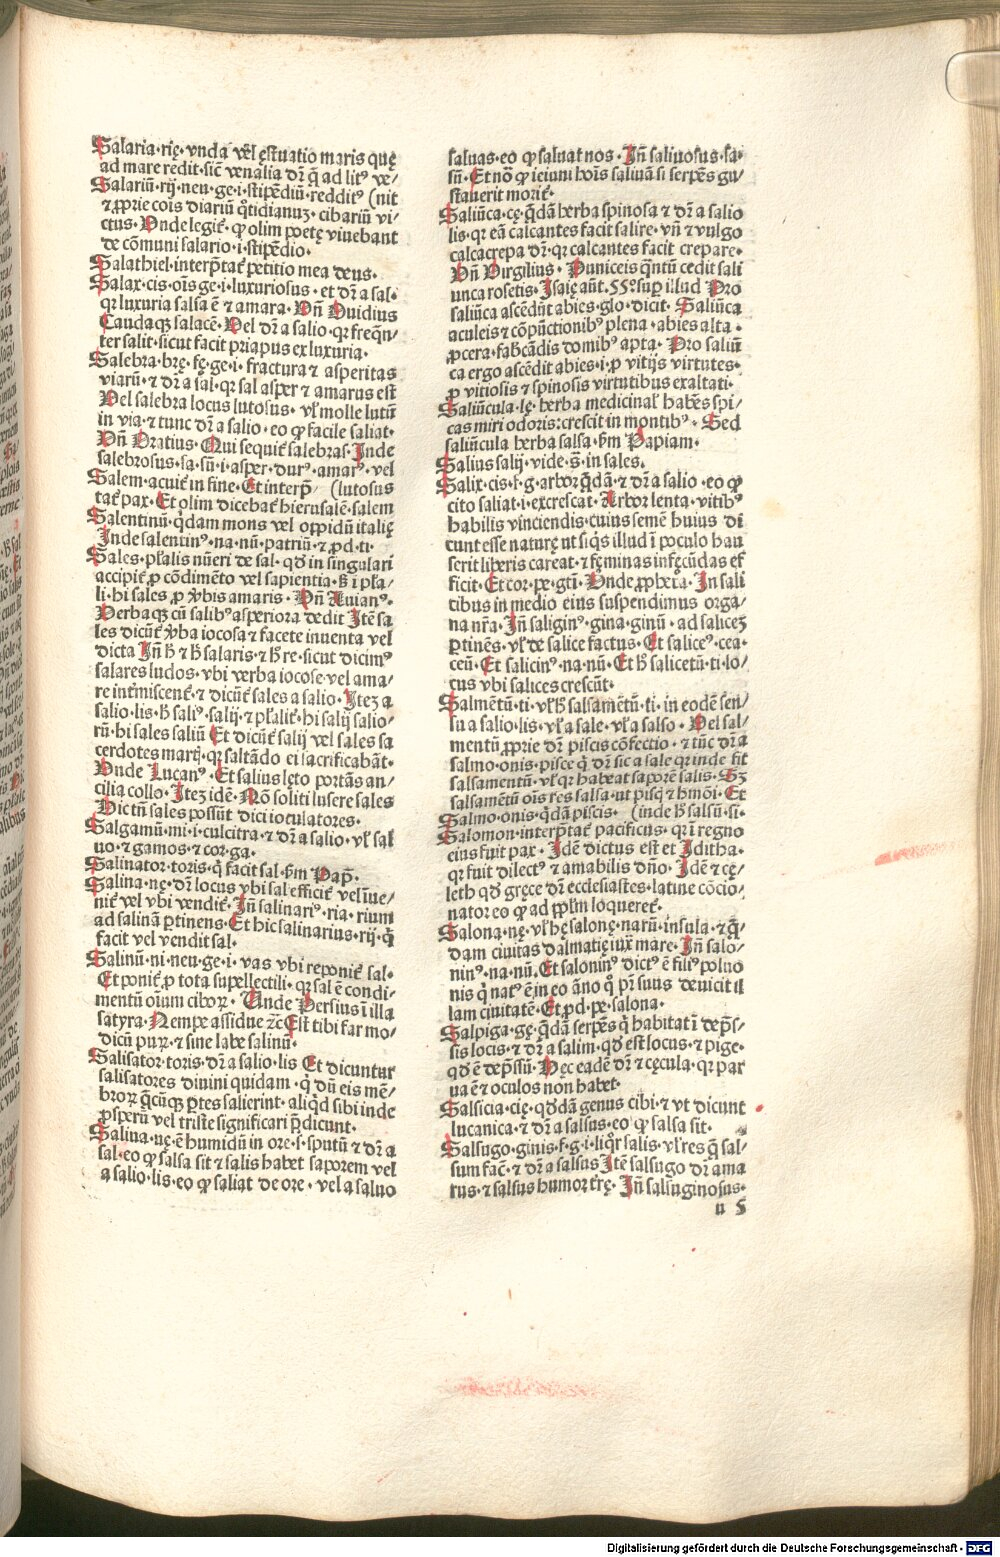 Salaria·rię·vnda vel̄ ęstuatio maris quę
ad mare redit·sic̄ venalia dr̄ q̄ ad litꝰ ve/
Salariū·rij·neu·ge·i·stipēdiū·redditꝰ (nit
⁊ ꝓprie cois diariū q̄tidianuz·cibariū vi/
ctus·Vnde legit̄·qꝫ olim poetę viuebant
de cōmuni salario·i·stipēdio·
Salathiel·interp̄tat̄ petitio mea deus·
Salax·cis·oīs ge·i·luxuriosus·et dr̄ a sal·
qr luxuria salsa ē ⁊ amara·Vn̄ Ouidius
Caudaqꝫ salacē·Vel dr̄ a salio·qr freq̄n/
ter salit·sicut facit priapus ex luxuria·
Salebra·brę·fę·ge·i·fractura ⁊ asperitas
viarū·⁊ dr̄ a sal·qr sal asper ⁊ amarus est
Vel salebra locus lutosus·vl̄ molle lutū
in via·⁊ tunc dr̄ a salio·eo qꝫ facile saliat·
Vn̄ Oratius·Qui sequit̄ salebras·Inde
salebrosus·sa·sū·i·asper·durꝰ·amarꝰ·vel
Salem·acuit̄ in fine·Et interp̄ (lutosus
tat̄ pax·Et olim dicebat̄ hierusalē·salem
Salentinū·q̄dam mons vel oppidū italię
Inde salentinꝰ·na·nū·patriū·⁊ ꝓd·ti·
Sales·pl̄alis nūeri de sal·qđ in singulari
accipit̄ ꝓ cōdimēto vel sapientia·s̄ ī pl̄a/
li·hi sales ꝓ v̄bis amaris·Vn̄ Auianꝰ·
Verbaqꝫ cū salibꝰ asperiora dedit Itē sa
les dicūt̄ v̄ba iocosa ⁊ facete inuenta vel
dicta In̄ h̄ ⁊ h̄ salaris·⁊ h̄ re·sicut dicimꝰ
salares ludos·vbi verba iocose vel ama/
re int̄miscent̄·⁊ dicūt̄ sales a salio·Itez a
salio·lis·h̄ saliꝰ·salij·⁊ pl̄alit̄·hi salij salio/
rū·hi sales saliū Et dicūt̄ salij vel sales sa
cerdotes martꝭ·qr saltādo ei sacrificabāt·
Vnde Lucanꝰ·Et salius lęto portās an/
cilia collo·Itez idē·Nō soliti lusere sales
Dictū sales possūt dici ioculatores·
Salgamū·mi·i·culcitra·⁊ dr̄ a salio·vl̄ sal
uo·⁊ gamos·⁊ cor·ga·
Salinator·toris·q̄ facit sal·s̄m Pap̄·
Salina·nę·dr̄ locus vbi sal efficit̄ vel īue/
nit̄ vel vbi vendit̄·In̄ salinariꝰ·ria·rium
ad salinā ꝑtinens·Et hic salinarius·rij·q̄
facit vel vendit sal·
Salinū·ni·neu·ge·i·vas vbi reponit̄ sal·
Et ponit̄ ꝓ tota supellectili·qr sal ē condi/
mentū oīum ciboꝝ·Vnde Persius ī illa
satyra·Nempe assidue ⁊c̄ Est tibi far mo/
dicū puꝝ·⁊ sine labe salinū·
Salisator·toris·dr̄ a salio·lis Et dicuntur
salisatores diuini quidam·q̄ dū eis mē/
broꝝ q̄cūqꝫ ꝑtes salierint·aliq̄d sibi inde
ꝓsperū vel triste significari p̄dicunt·
Saliua·uę·ē humidū in ore·s·sputū ⁊ dr̄ a
sal·eo qꝫ salsa sit ⁊ salis habet saporem vel
a salio·lis·eo qꝫ saliat de ore·vel a saluo
saluas·eo qꝫ saluat nos·In̄ saliuosus·sa·
sū·Et nō qꝫ ieiuni hoīs saliuā si serpēs gu/
stauerit morit̄·
Saliūca·cę·q̄dā herba spinosa ⁊ dr̄ a salio
lis·qr eā calcantes facit salire·vn̄ ⁊ vulgo
calcacrepa dr̄·qr calcantes facit crepare·
Vn̄ Virgilius·Puniceis q̄ntū cedit sali
unca rosetis·Isaię aūt·55°·suꝑ illud Pro
saliūca ascēdn̄t abies·glo·dicit·Saliūca
aculeis ⁊ cōpūctionibꝰ plena·abies alta·
ꝓcera·fab̄cādis domibꝰ apta·Pro saliū
ca ergo ascēdit abies·i·ꝓ vitijs virtutes·
ꝓ vitiosis ⁊ spinosis virtutibus exaltati·
Saliūcula·lę·herba medicinal̄ habēs spi/
cas miri odoris:crescit in montibꝰ·Sed
saliūcula herba salsa·s̄m Papiam·
Salius salij·vide·s̄·in sales·
Salix·cis·f·g·arbor q̄dā·⁊ dr̄ a salio·eo qꝫ
cito saliat·i·excrescat·Arbor lenta·vitibꝰ
habilis vinciendis·cuius semē huius di
cunt esse naturę ut siq̄s illud ī poculo hau
serit liberis careat·⁊ fęminas infęcūdas ef
ficit·Et cor·pe·gtī·Vnde ꝓpheta·In sali
cibus in medio eius suspendimus orga/
na nr̄a·In̄ saliginꝰ·gina·ginū·ad salicez
ꝑtinēs·vl̄ de salice factus·Et saliceꝰ·cea·
ceū·Et salicinꝰ·na·nū·Et h̄ salicetū·ti·lo/
cus vbi salices crescūt·
Salmētū·ti·vl̄ h̄ salsamētū·ti·in eodē sen/
su a salio·lis·vl̄ a sale·vl̄ a salso·Vel sal/
mentū ꝓprie dr̄ piscis cōfectio·⁊ tūc dr̄ a
salmo·onis·pisce q̄ dr̄ sic a sale qr inde fit
salsamentū·vl̄ qr habeat saporē salis·Sꝫ
salsamētū oīs res salsa·ut piscꝭ ⁊ hmōi·Et
Salmo·onis·q̄dā piscis· (inde h̄ salsū·si·
Salomon·interp̄tat̄ pacificus·qr ī regno
eius fuit pax·Idē dictus est et Iditha·
qr fuit dilectꝰ ⁊ amabilis dn̄o·Idē ⁊ cę/
leth qđ gręce dr̄ ecclesiastes·latine cōcio/
nator eo qꝫ ad ppl̄m loqueret̄·
Salona·nę·vl̄ hę salonę·narū·insula·⁊ q̄/
dam ciuitas dalmatię iux̄ mare·In̄ salo/
ninꝰ·na·nū·Et saloninꝰ dictꝰ ē filiꝰ polio
nis q̄ natꝰ ē in eo āno q̊ pr̄ suus deuicit il
lam ciuitatē·Et ꝓd·pe·salona·
Salpiga·gę·q̄dā serpēs q̄ habitat ī dep̄s/
sis locis·⁊ dr̄ a salim·qđ est locus·⁊ pige·
qđ ē dep̄ssū·Hęc eadē dr̄ ⁊ cęcula·qr par
ua ē ⁊ oculos non habet·
Salsicia·cię·qđdā genus cibi·⁊ vt dicunt
lucanica·⁊ dr̄ a salsus·eo qꝫ salsa sit·
Salsugo·ginis·f·g·i·liq̊r salis·vl̄ res q̄ sal/
sum fac̄·⁊ dr̄ a salsus Itē salsugo dr̄ ama
rus·⁊ salsus humor tr̄ę·In̄ salsuginosus·
u 5
Digitalisierung gefördert durch die Deutsche Forschungsgemeinschaft · DFG